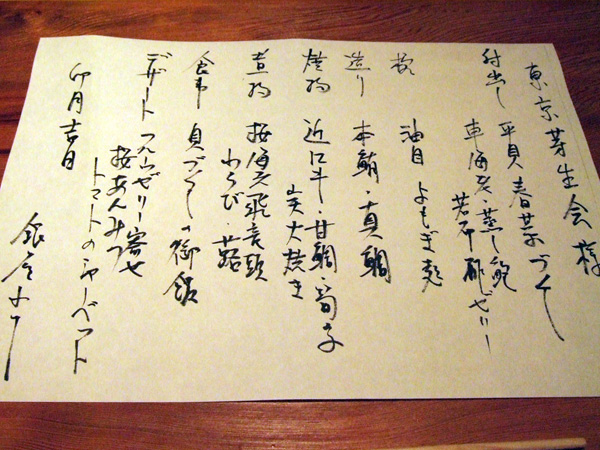 東京芽生会様
付出し 平貝 春芽づくし
車海老・蒸し鮑
若布酢ゼリー
椀 油目 よもぎ麺
造り 本鮪・真鯛
焼物 近江牛・甘鯛・筍子
炭火焼き
煮物 桜海老飛竜頭
わらび・蕗
食事 貝づくしの御飯
デザート フルーツゼリー寄せ
桜あんみつ
トマトのシャーベット
卯月吉日
銀座